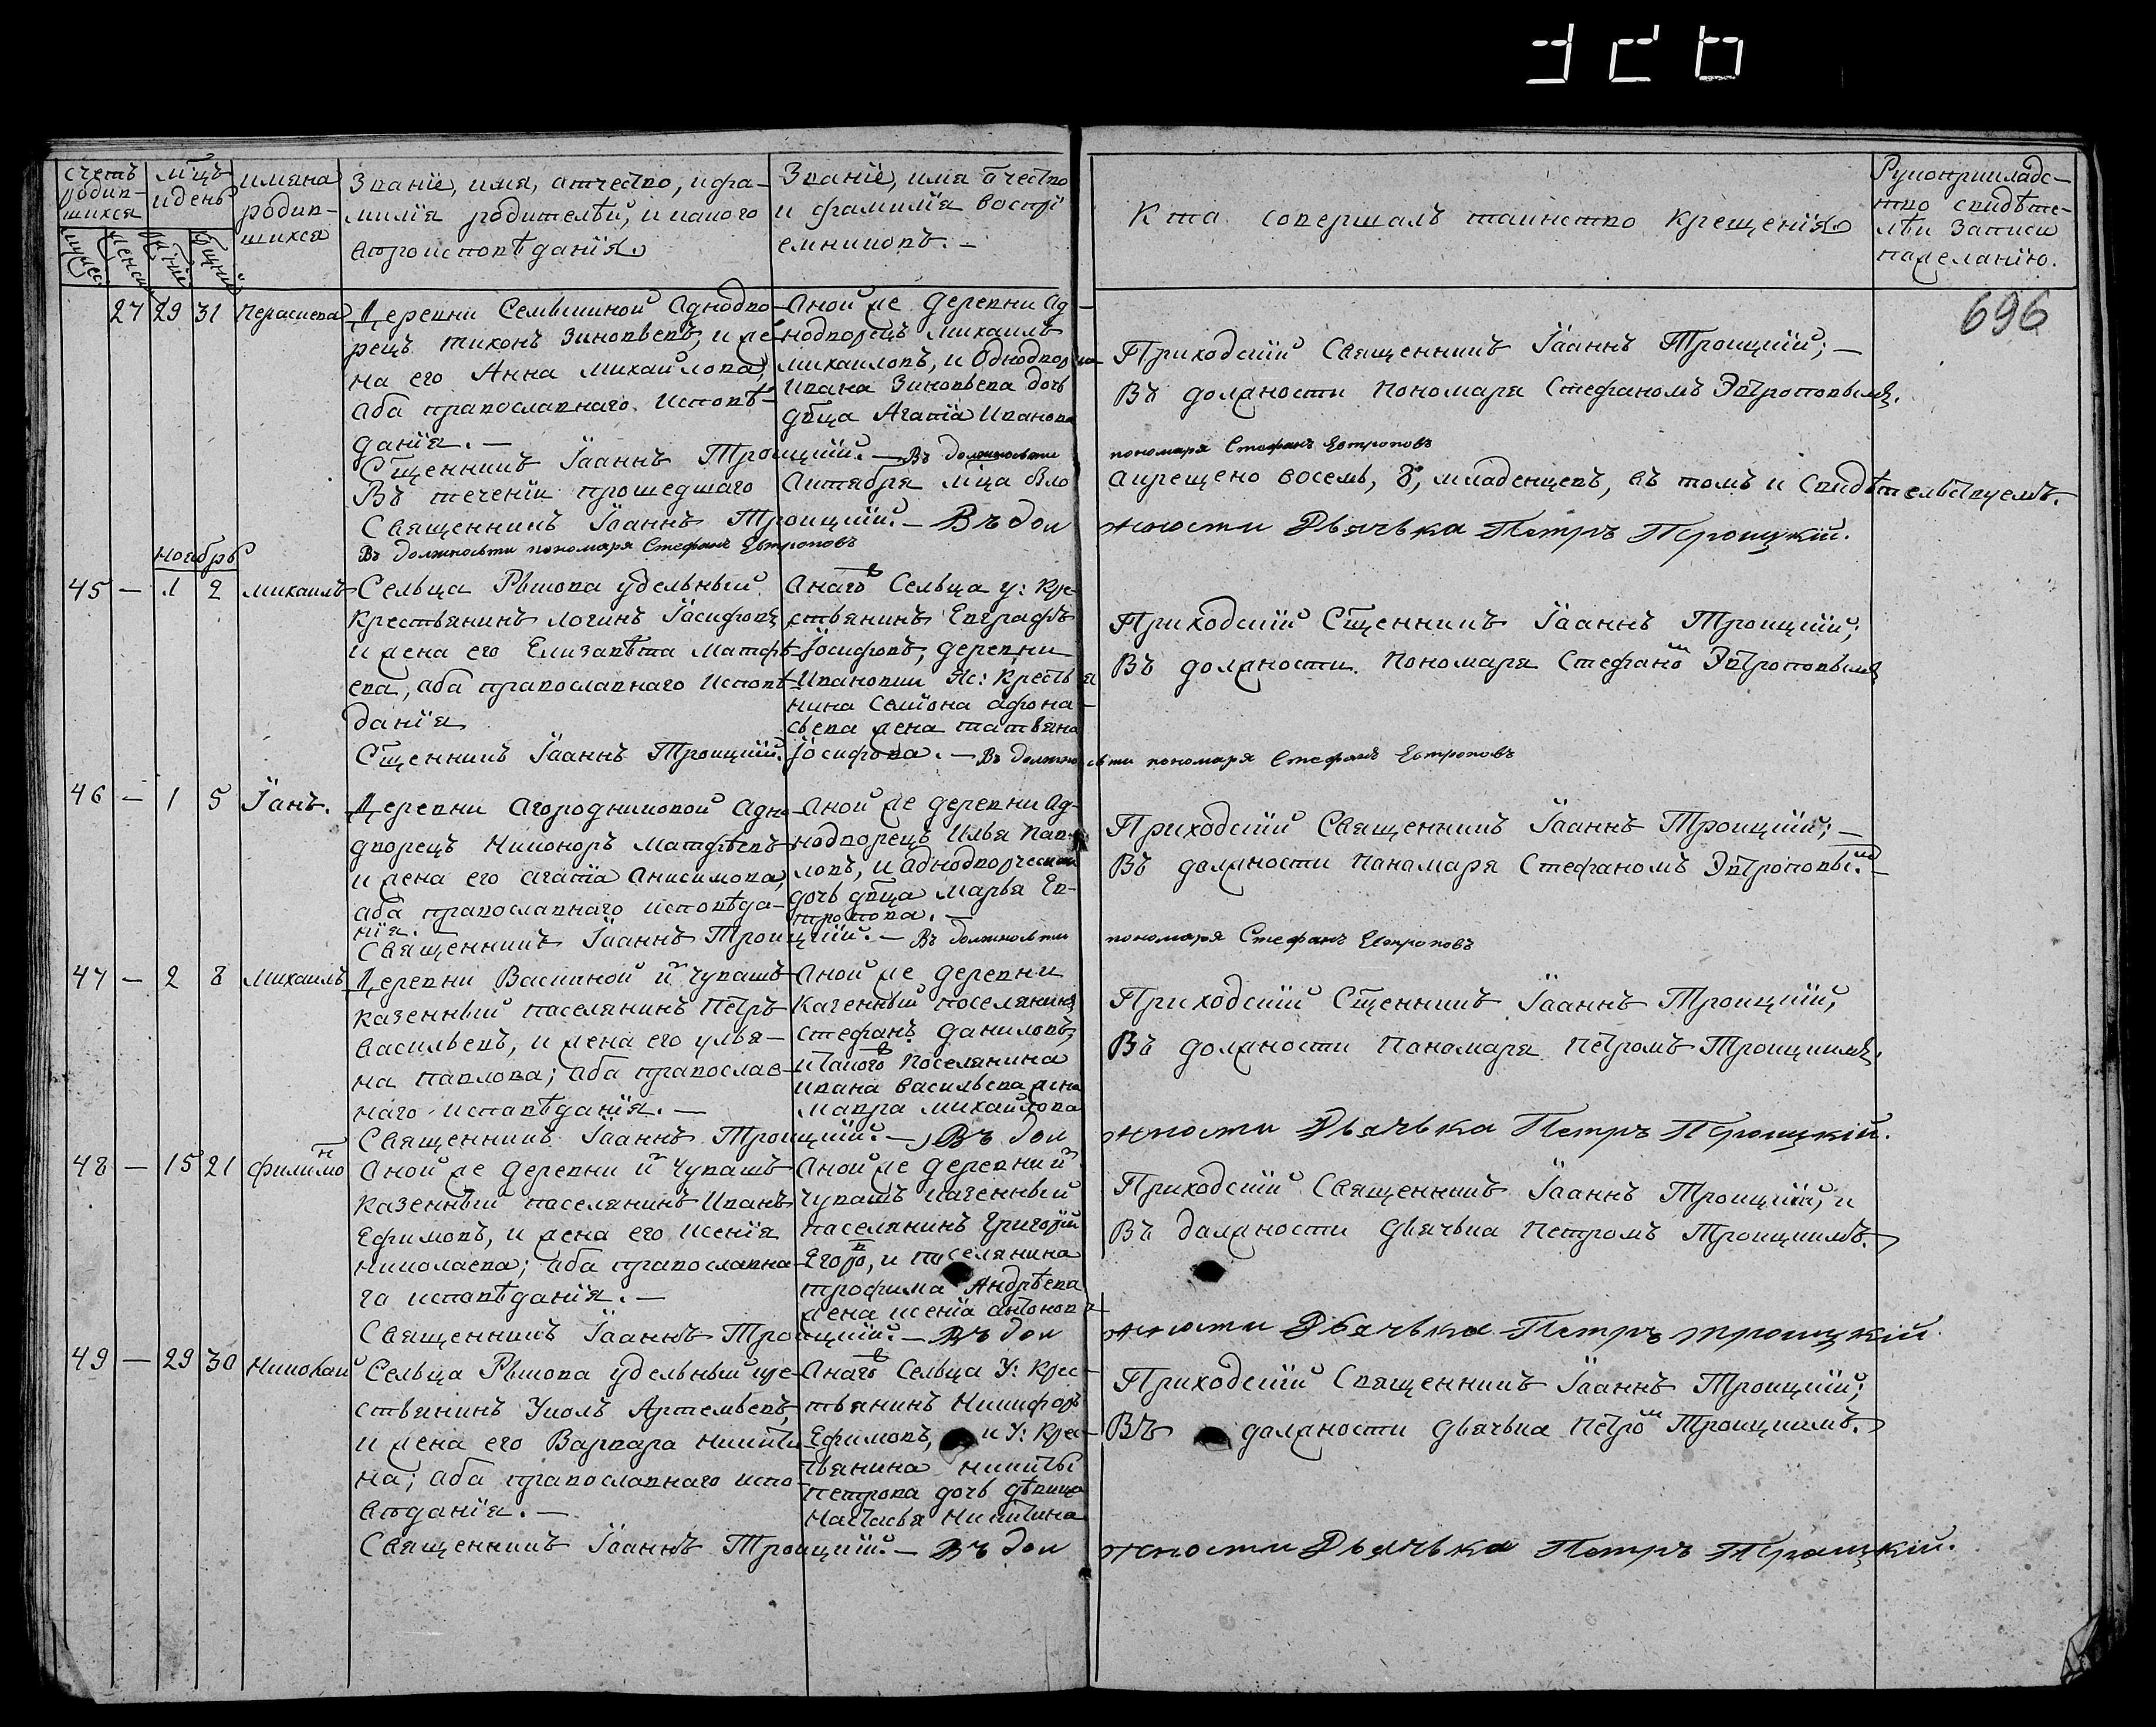 счетъ родив-
шихся
мужес:
женск
м҃цъ
и день
рожденія
крещенія
имяна
родив-
шихся
Званіе, имя, отчество, и фа-
милія родителѣй, и какого
вѣроисповѣданія
Званіе, имя ѿчество
и фамилія воспрі
емниковъ. —
Кто совершалъ таинство крещенія
Рукоприкладс-
тво свидѣте-
лѣй записи
по желанію.
696
27 29 31 Параскева
Деревни Селивкиной аднодво-
рецъ Тихонъ Зиновьевъ, и же
на его Анна Михайлова,
аба православнаго исповѣ-
данія. —
аной же деревни ад-
нодворецъ Михаилъ
Михаиловъ, и однодворца
Ивана Зиновьева дочь
дѣвца Агапіа Иванова
Приходскій Священникъ Іоаннъ Троицкій; —
Въ должности пономаря Стефаномъ Эвтроповымъ.
Сщенникъ Іоаннъ Троицкій. — Въ должности пономаря Стефанъ Евтроповъ
Въ теченіи прошедшаго Актября м҃ца было акрещено восемь, 8, младенцевъ, въ томъ и свидѣтельствуемъ.
Священникъ Іоаннъ Троицкій. — Въ должности Дьячька Петръ Троицкій.
Въ должности пономаря Стефанъ Евтроповъ
Ноябрь
45 — 1 2 Михаилъ
Сельца Рыкова удельный
крестьянинъ Логинъ Іасифовъ
и жена его Елизавѣта Матфѣ-
ева, аба православнаго исповѣ-
данія
Анаго Сельца у: кре-
стьянинъ Евграфъ
Іосифовъ, деревни
Ивановки Яс: крестья
нина Семіона Афона-
сьева жена Татьяна
Іосифова. —
Приходскій Сщенникъ Іоаннъ Троицкій;
Въ должности пономаря Стефаномъ Эвтроповымъ
Сщенникъ Іоаннъ Троицкій. Въ должности пономаря Стефанъ Евтроповъ
46 — 1 5 Іанъ.
Деревни Агородниковой адно-
дворецъ Никоноръ Матфѣевъ
и жена его Агапіа Анисимова,
аба православнаго исповѣда-
нія. —
аной же деревни ад-
нодворецъ Илья Пав-
ловъ, и аднодворческая
дочь дѣвца Марья Ев-
тропова. —
Приходскій Священникъ Іоаннъ Троицкій; —
Въ должности понамаря Стефаномъ Эвтроповымъ. —
Священникъ Іоаннъ Троицкій. — Въ должности пономаря Стефанъ Евтроповъ
47 — 2 8 Михаилъ
Деревни Васкиной из чувашъ
казенный паселянинъ Петръ
Васильевъ, и жена его улья-
на Павлова; аба православ-
наго исповѣданія. —
аной же деревни
казенный поселянинъ
Стефанъ Даниловъ,
и такого поселянина
Ивана Васильева жена
Мавра Михайлова
Приходскій Сщенникъ Іоаннъ Троицкій,
Въ должности пономаря Петромъ Троицкимъ.
Священникъ Іоаннъ Троицкій. — Въ должности Дьячька Петръ Троицкій.
48 — 15 21 Филимон
аной же деревни из чувашъ
казенный паселянинъ Иванъ
Ефимовъ, и жена его Ксенія
Николаева; аба православна-
го исповѣданія. —
аной же деревни из
чувашъ казенный
паселянинъ Григорій
Егоровъ, и поселянина
Трофима Андрѣева
жена Ксенія Антонова
Приходскій Священникъ Іоаннъ Троицкій, и
Въ должности дьячька Петромъ Троицкимъ.
Священникъ Іоаннъ Троицкій. — Въ должности Дьячька Петръ Троицкій.
49 — 29 30 Николай
Сельца Рыкова удельный кре-
стьянинъ Уколъ Артемьевъ,
и жена его Варвара Никити-
на; аба православнаго испо-
вѣданія. —
Анаго Сельца У: крес-
тьянинъ Никифоръ
Ефимовъ, и У: крес-
тьянина Никиты
Петрова дочь дѣвица
Настасья Никитина
Приходскій Священникъ Іоаннъ Троицкій;
Въ должности дьячька Петромъ Троицкимъ.
Священникъ Іоаннъ Троицкій. — Въ должности Дьячька Петръ Троицкій.